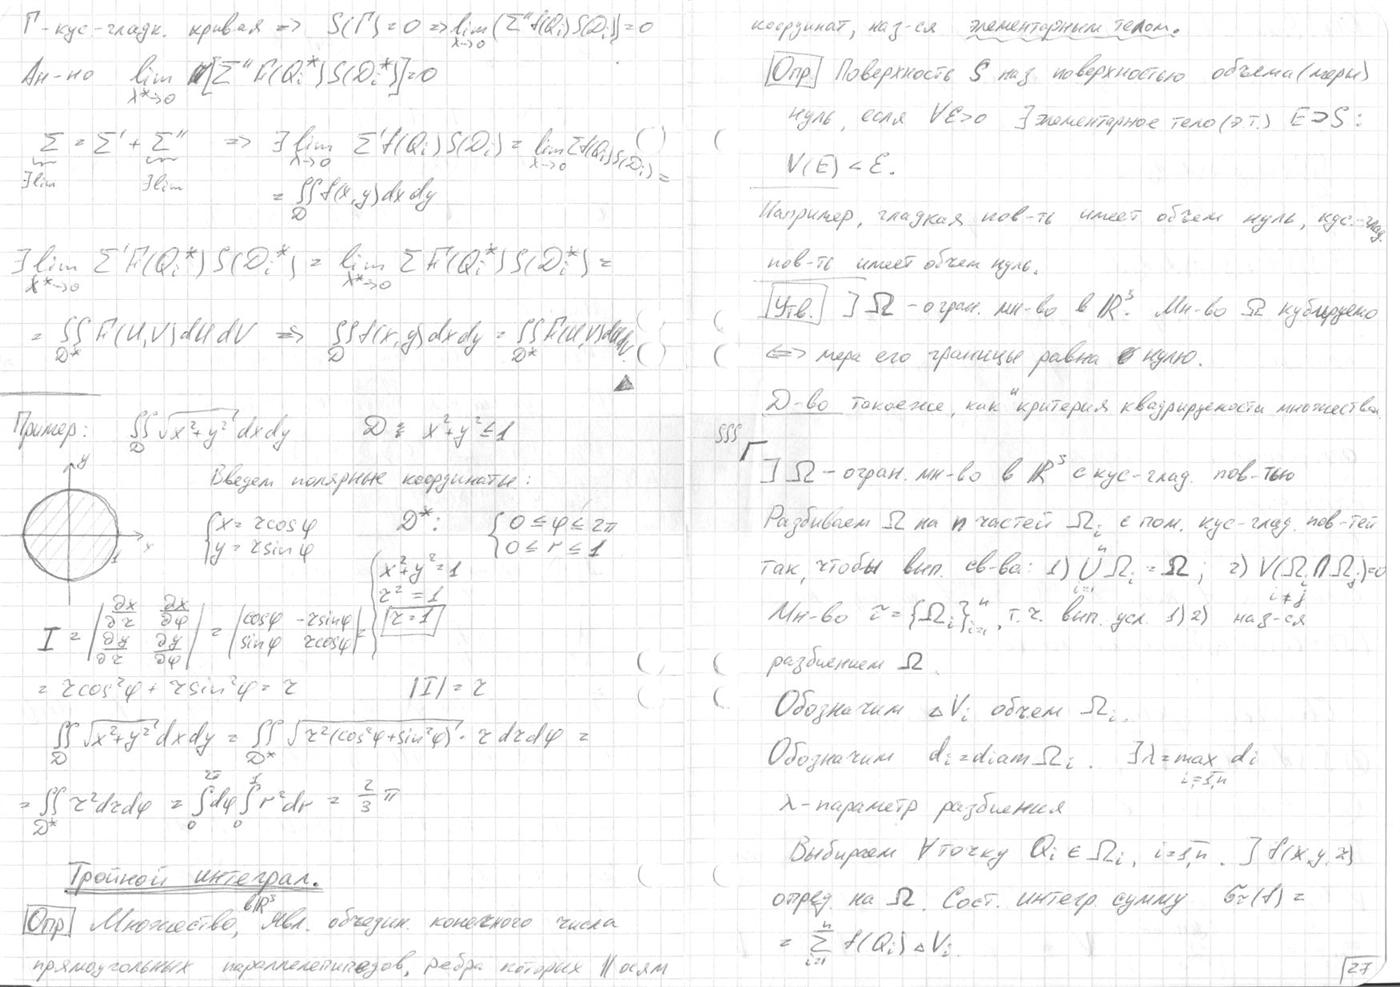 Г-кус-гладк. кривая => S(Г)=0 => lim λ→0 (Σ'' f(Qi) S(Di))=0
Ан-но lim λ*→0 [Σ'' F(Qi*) S(Di*)]=0
Σ = Σ' + Σ'' => ∃ lim λ→0 Σ' f(Qi) S(Di) = lim λ→0 Σ f(Qi) S(Di) =
∃lim ∃lim
= ∬D f(x,y)dxdy
∃ lim λ*→0 Σ' F(Qi*) S(Di*) = lim λ*→0 Σ F(Qi*) S(Di*) =
= ∬D* F(U,V)dUdV => ∬D f(x,y)dxdy = ∬D* F(U,V)dUdV.
▲
Пример: ∬D √(x²+y²) dxdy D: x²+y²≤1
Введем полярные координаты:
y x 1
{x=rcosφ
y=rsinφ
D*: {0≤φ≤2π
0≤r≤1
{x²+y²=1
r²=1
r=1
I = |∂x/∂r ∂x/∂φ
∂y/∂r ∂y/∂φ| = |cosφ -rsinφ
sinφ rcosφ| =
= rcos²φ + rsin²φ = r |I|=r
∬D √(x²+y²) dxdy = ∬D* √(r²(cos²φ+sin²φ)) · r dr dφ =
= ∬D* r²drdφ = ∫₀^2π dφ ∫₀^1 r²dr = 2/3 π
Тройной интеграл.
Опр Множество, в ℝ³ явл. объедин. конечного числа
прямоугольных параллелепипедов, ребра которых || осям
координат, наз-ся элементарным телом.
Опр Поверхность S наз поверхностью объема (меры)
нуль, если ∀ε>0 ∃ элементарное тело (э.т.) E⊃S:
V(E)<ε.
Например, гладкая пов-ть имеет объем нуль, кус.-глад.
пов-ть имеет объем нуль.
Утв. ] Ω - огран. мн-во в ℝ³. Мн-во Ω кубируемо
<=> мера его границы равна нулю.
Д-во такоеже, как "критерия квадрируемости множества
∫∫∫
] Ω - огран. мн-во в ℝ³ с кус-глад. пов-тью
Разбиваем Ω на n частей Ωi с пом. кус-глад. пов-тей
так, чтобы вып. св-ва: 1) ∪ i=1 n Ωi = Ω; 2) V(Ωi ∩ Ωj)=0 i≠j
Мн-во τ={Ωi} i=1 n, т.ч. вып. усл. 1) 2) наз-ся
разбиением Ω.
Обозначим ΔVi объем Ωi.
Обозначим di=diam Ωi. ∃λ=max di i=1,n
λ-параметр разбиения
Выбираем ∀ точку Qi ∈ Ωi, i=1,n. ] f(x,y,z)
опред. на Ω. Сост. интегр. сумму στ(f) =
= Σ i=1 n f(Qi) ΔVi.
27